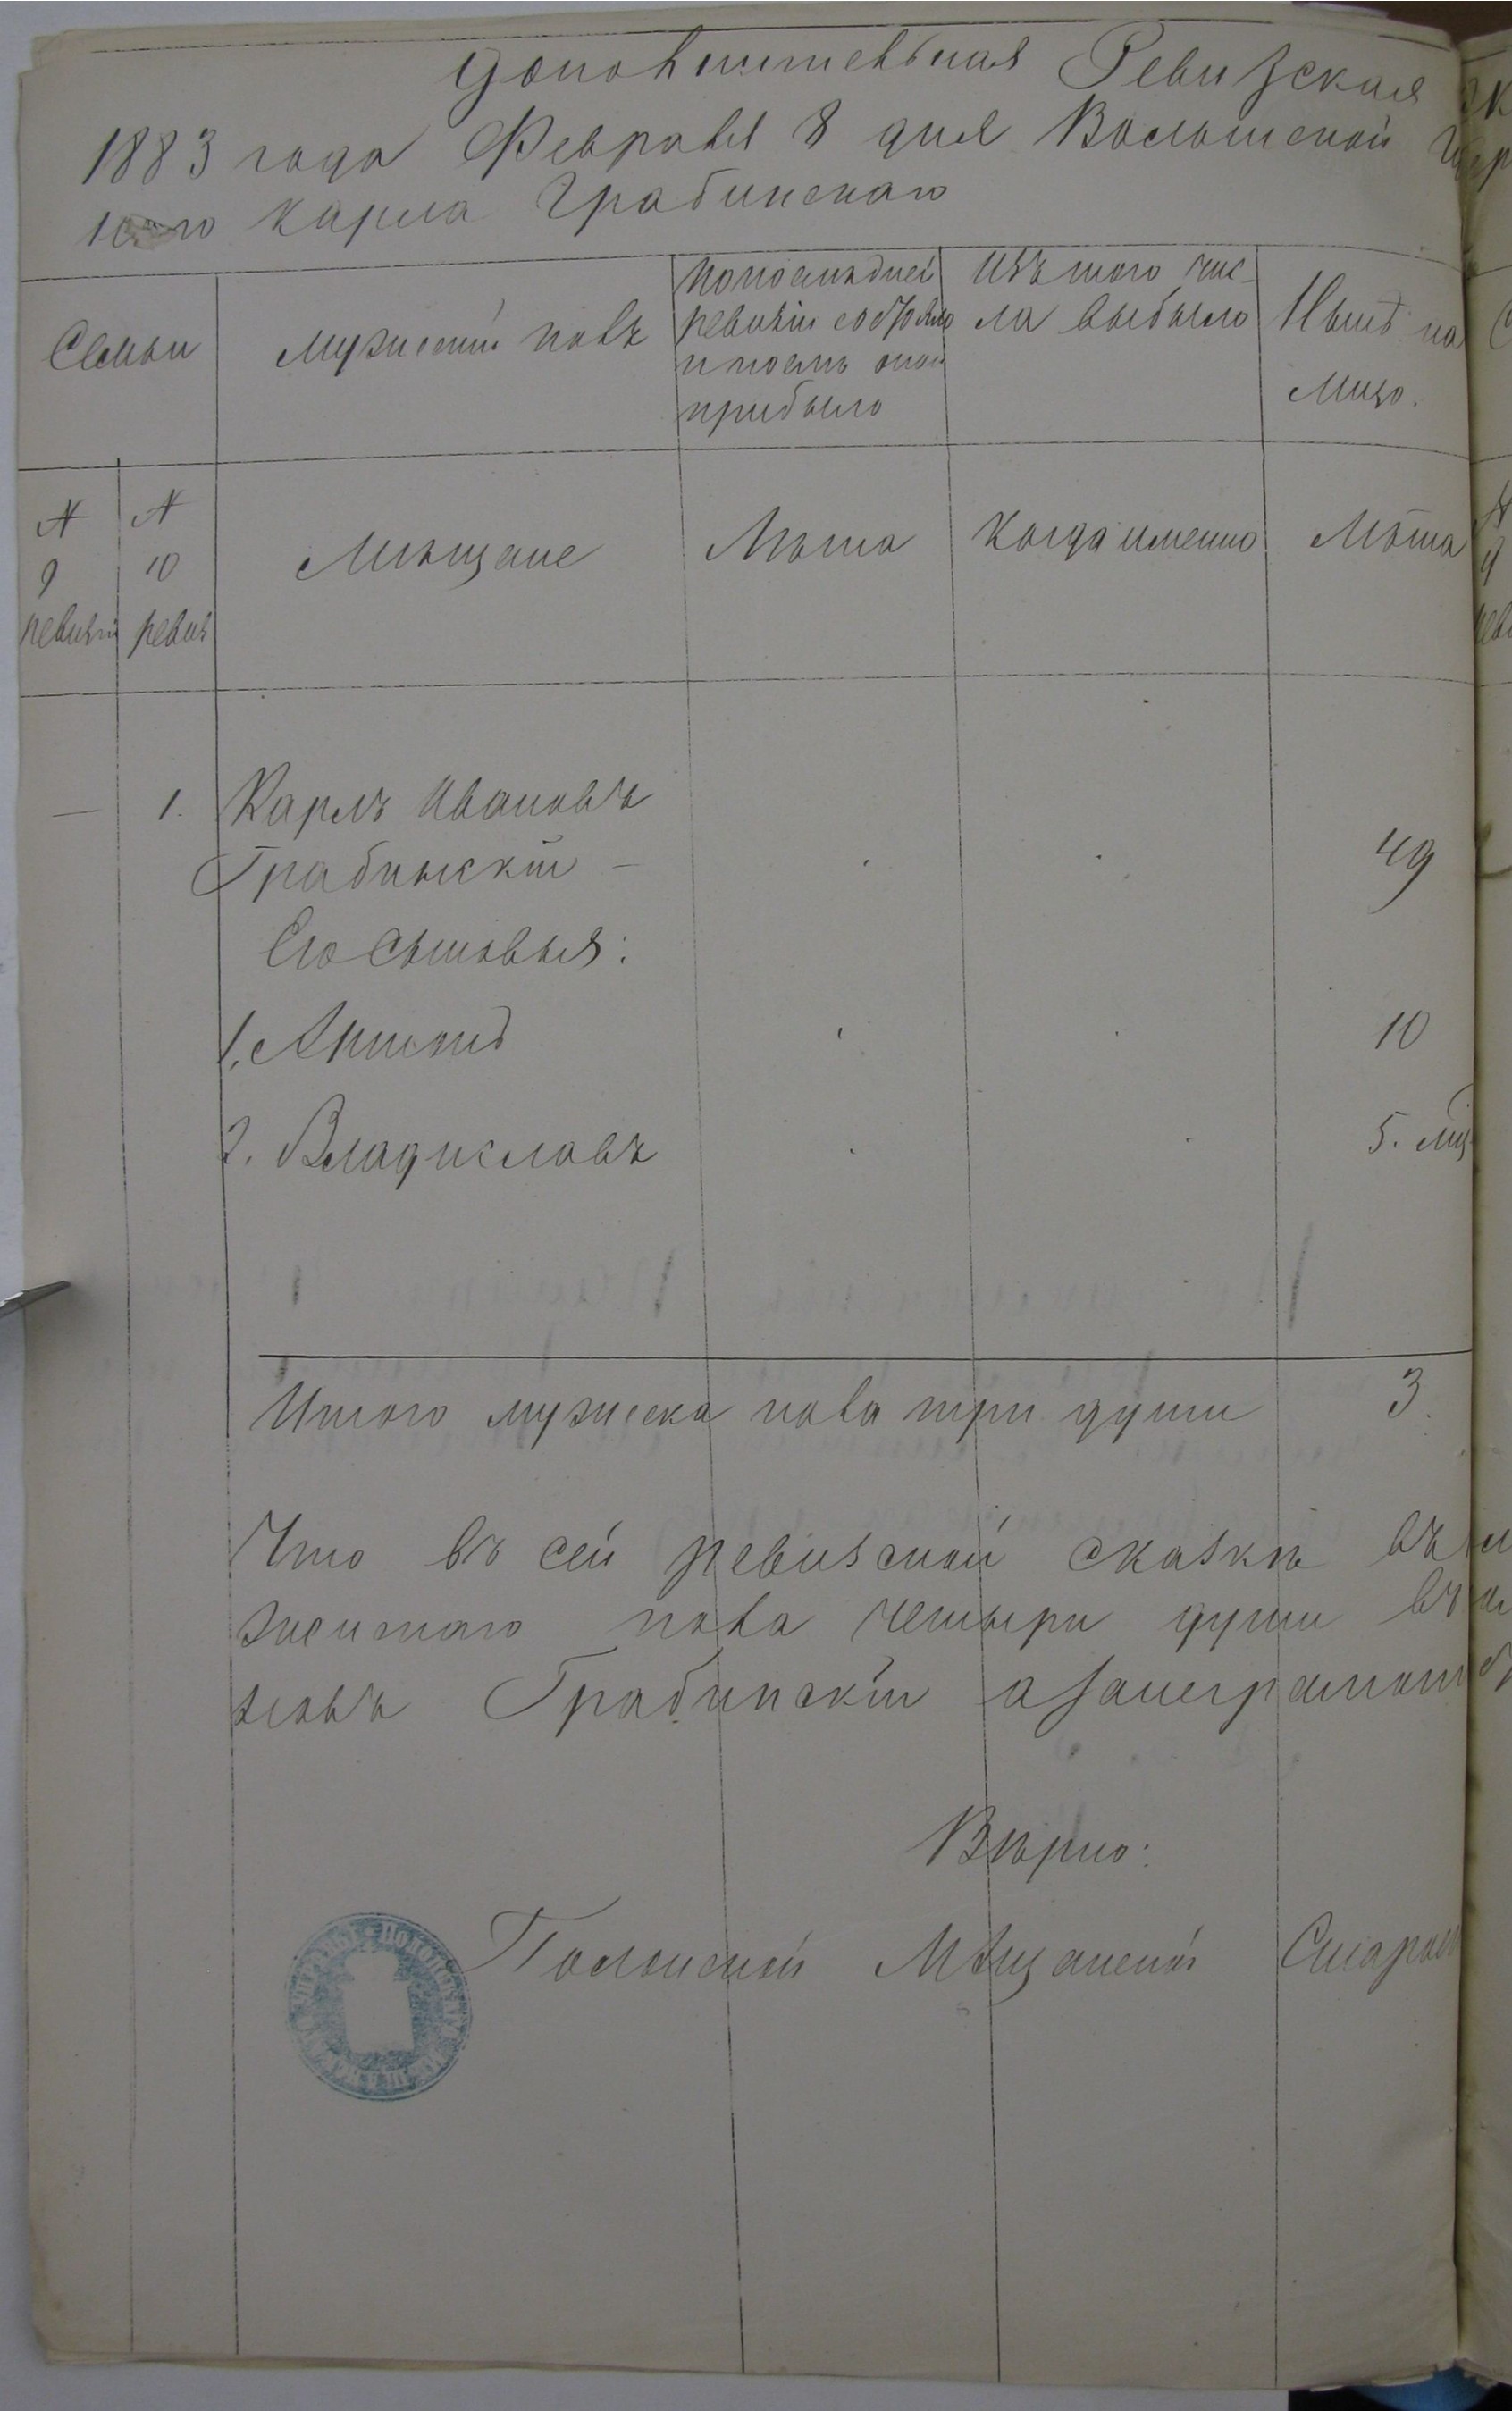 Дополнительная Ревизская
1883 года Февраля 8 дня Волынской
Карла Грабинскаго
Семьи
Мужескій полъ
По последней ревизіи состояло и после оной прибыло
Изъ того чис-
ла выбыло
Нынѣ на
лицо.
№ 9 ревизіи
№ 10 ревиз
Мѣщане
Лѣта
Когда именно
Лѣта
— 1. Карлъ Ивановъ
Грабинскій — 49
Его Сыновья:
1. Антонъ 10
2. Владиславъ 5. мц
Итого мужеска пола три души 3.
Что въ сей ревизской сказкѣ въ
женскаго пола четыри души въ
Грабинскій а за неграмот
Вѣрно:
Полонской Мѣщанскій Старост